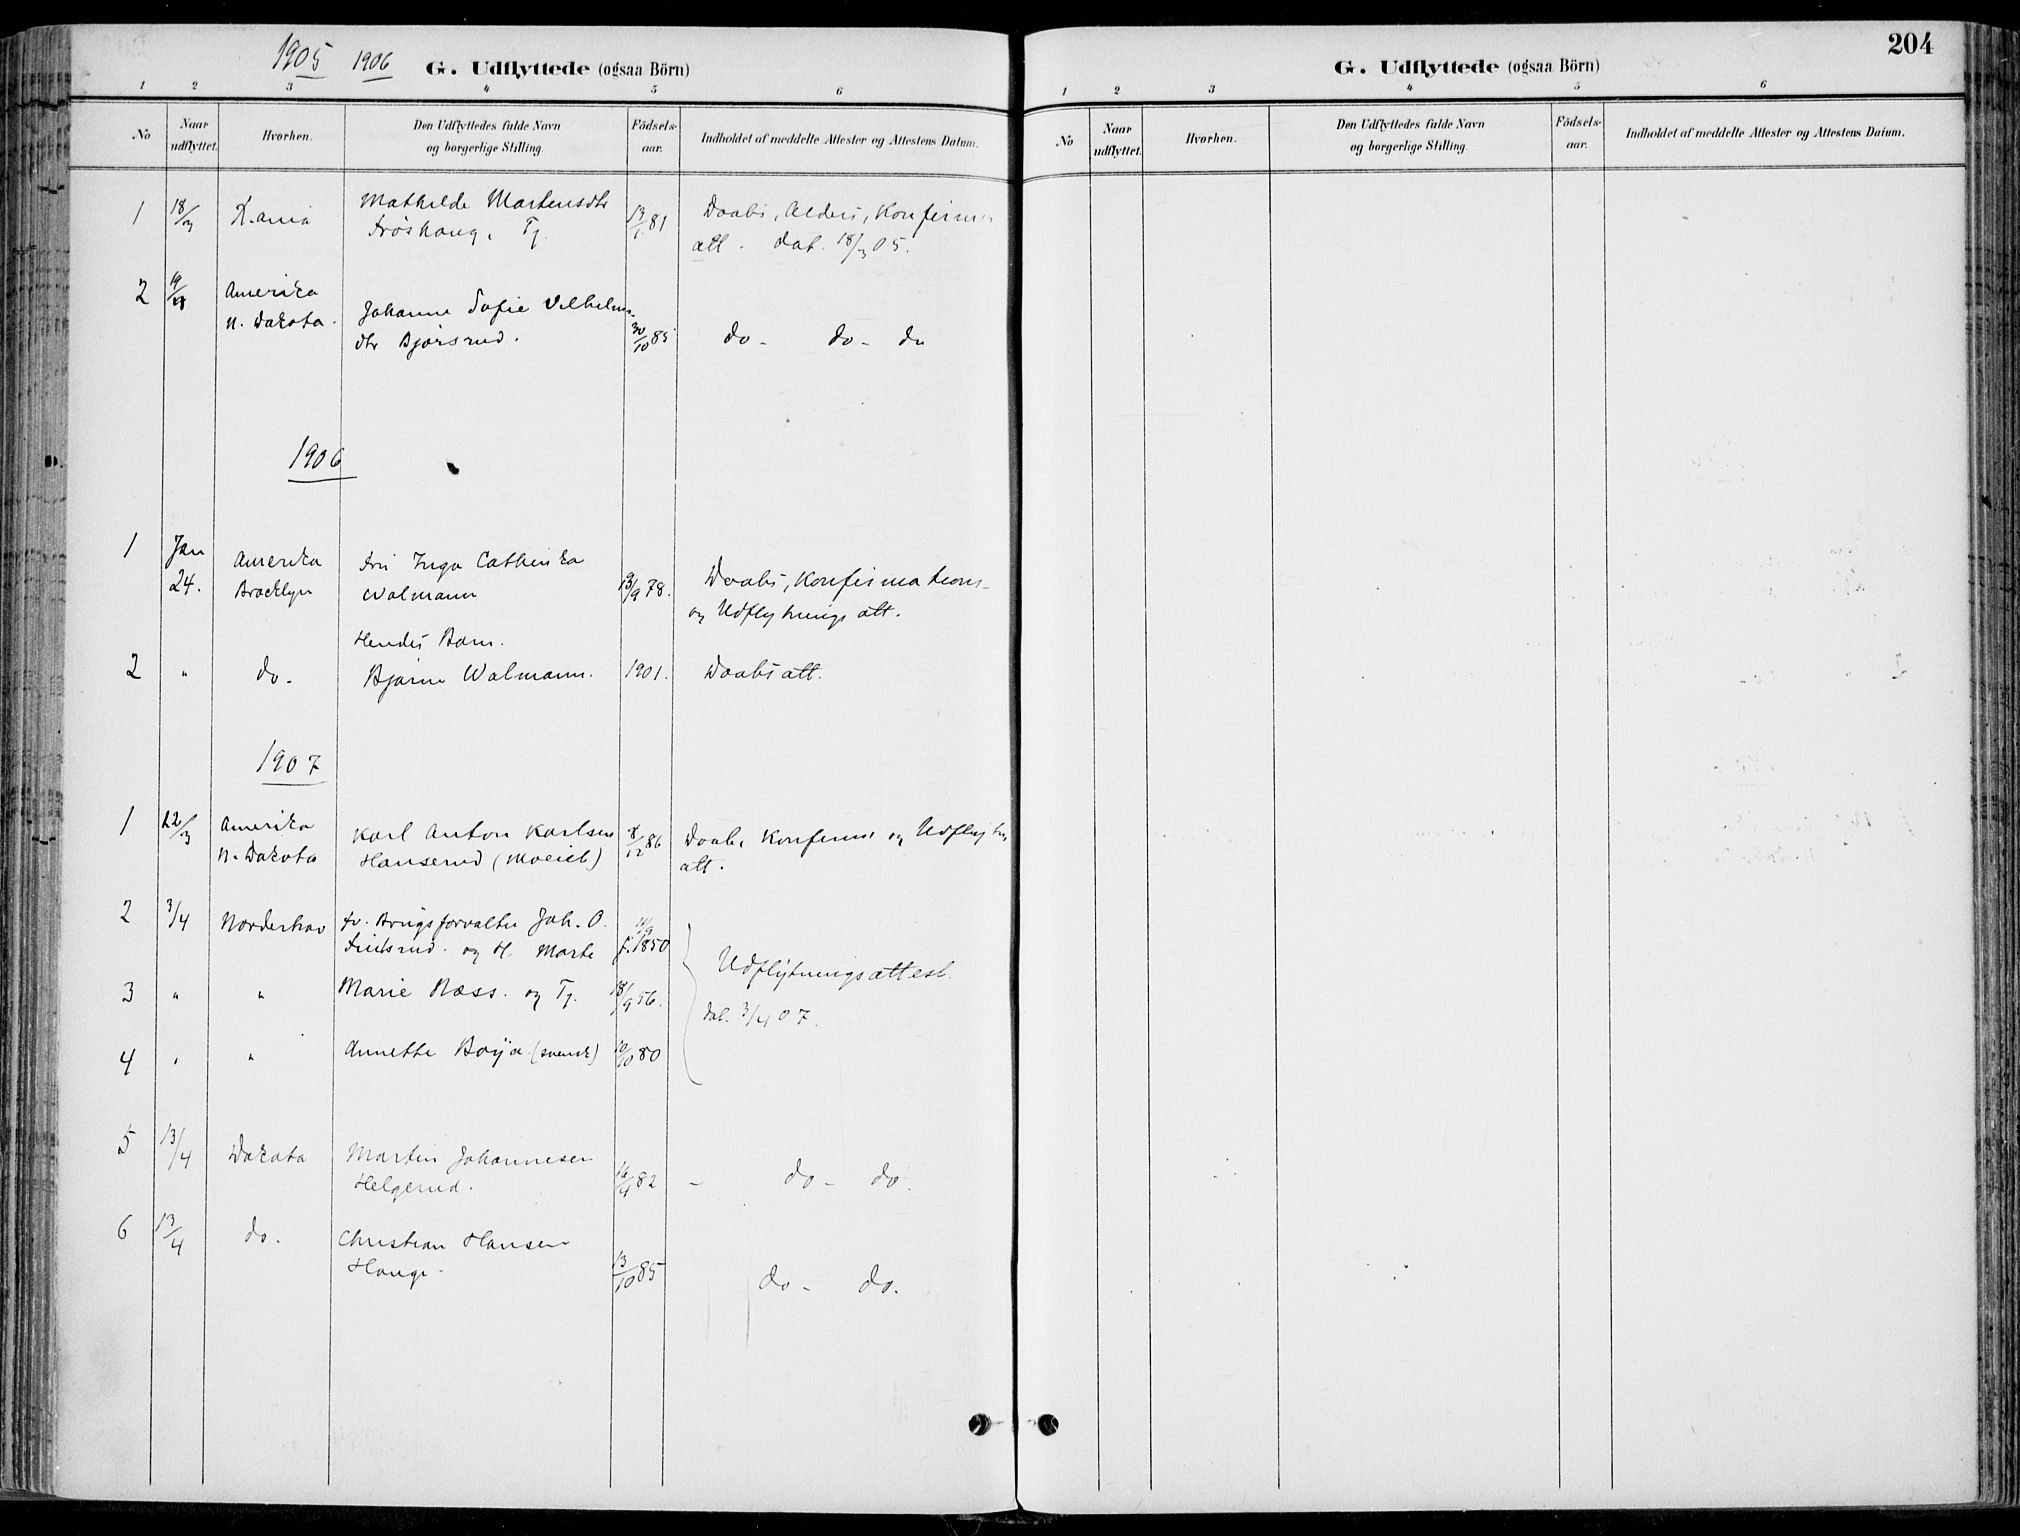 1905 1906 G. Udflyttede (ogsaa Börn)
1 2 3 4 5 6
No Naar udflyttet. Hvorhen. Den Udflyttedes fulde Navn og borgerlige Stilling. Födselsaar. Indholdet af meddelte Attester og Attestens Datum.
1 18/3 K.ania Mathilde Martensdtr 13/1 81 Daabs, Alders, Konfirm
Fröshaug, Tj. att. dat. 18/3 05.
2 19/4 Amerika
N. Dakota. Johanne Sofie Vilhelms-
dtr Bjørsrud. 30/10 85 do - do - do
1906
1 Jan 24. Amerika Fru Inga Cathinka
Brooklyn Walmann 19/9 78. Daabs, Konfirmations-
og Udflytnings att.
Hendes Barn.
2 " do. Bjarne Walmann. 1901. Daabs att.
1907
1 22/3 Amerika Karl Anton Karlsen 8/12 86 Daab, Konfirm og Udflytn
N. Dakota Hanserud (Moeieb) att.
2 3/4 Norderhov fv. Brugsforvalter Joh. O.
og H. Marte f. 1850
3 " " Marie Næss. og Tj. 18/9 56. Udflytningsattest.
dat. 3/4 07.
4 " " Annette (svensk) 10/10 80
5 13/4 Dakota Martin Johannesen
Helgerud. 16/4 82 - do - do.
6 13/4 do. Christian Hansen
Hauge. 13/10 85 do - do.
204
G. Udflyttede (ogsaa Börn)
1 2 3 4 5 6
No Naar udflyttet. Hvorhen. Den Udflyttedes fulde Navn og borgerlige Stilling. Födselsaar. Indholdet af meddelte Attester og Attestens Datum.